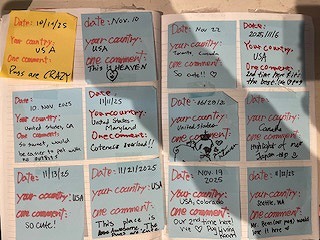 Date: 10/14/25
Your country:
USA
One comment:
Pugs are CRAZY
date: Nov. 10
your country:
USA
one comment:
This is HEAVEN
Date: Nov 22
your country:
Toronto, Canada
one comment:
So cute!!
Date:
2025/11/6
Your country:
USA
One comment:
2nd time here & it's
the best!!
Date:
10 Nov 2025
Your country:
United States, CA
One comment:
So sweet, would
be easier to pet with
no outfits
Date:
11/11/25
Your country:
United States-
Maryland
One Comment:
Cuteness overload!!
Date:
your country:
United States
one comment:
Date:
your country:
Canada
one comment:
Highlight of our
Japan trip
Date:
11/13/25
your country: USA
one comment:
So cute!
Date:
11/21/2025
your country: USA
one comment:
This place is
Date:
Nov. 19
2025
your country:
USA, Colorado
one comment:
Our 2nd time here!
We ♡ Pug living
Date:
your country:
Seattle, WA
one comment:
would
love it here